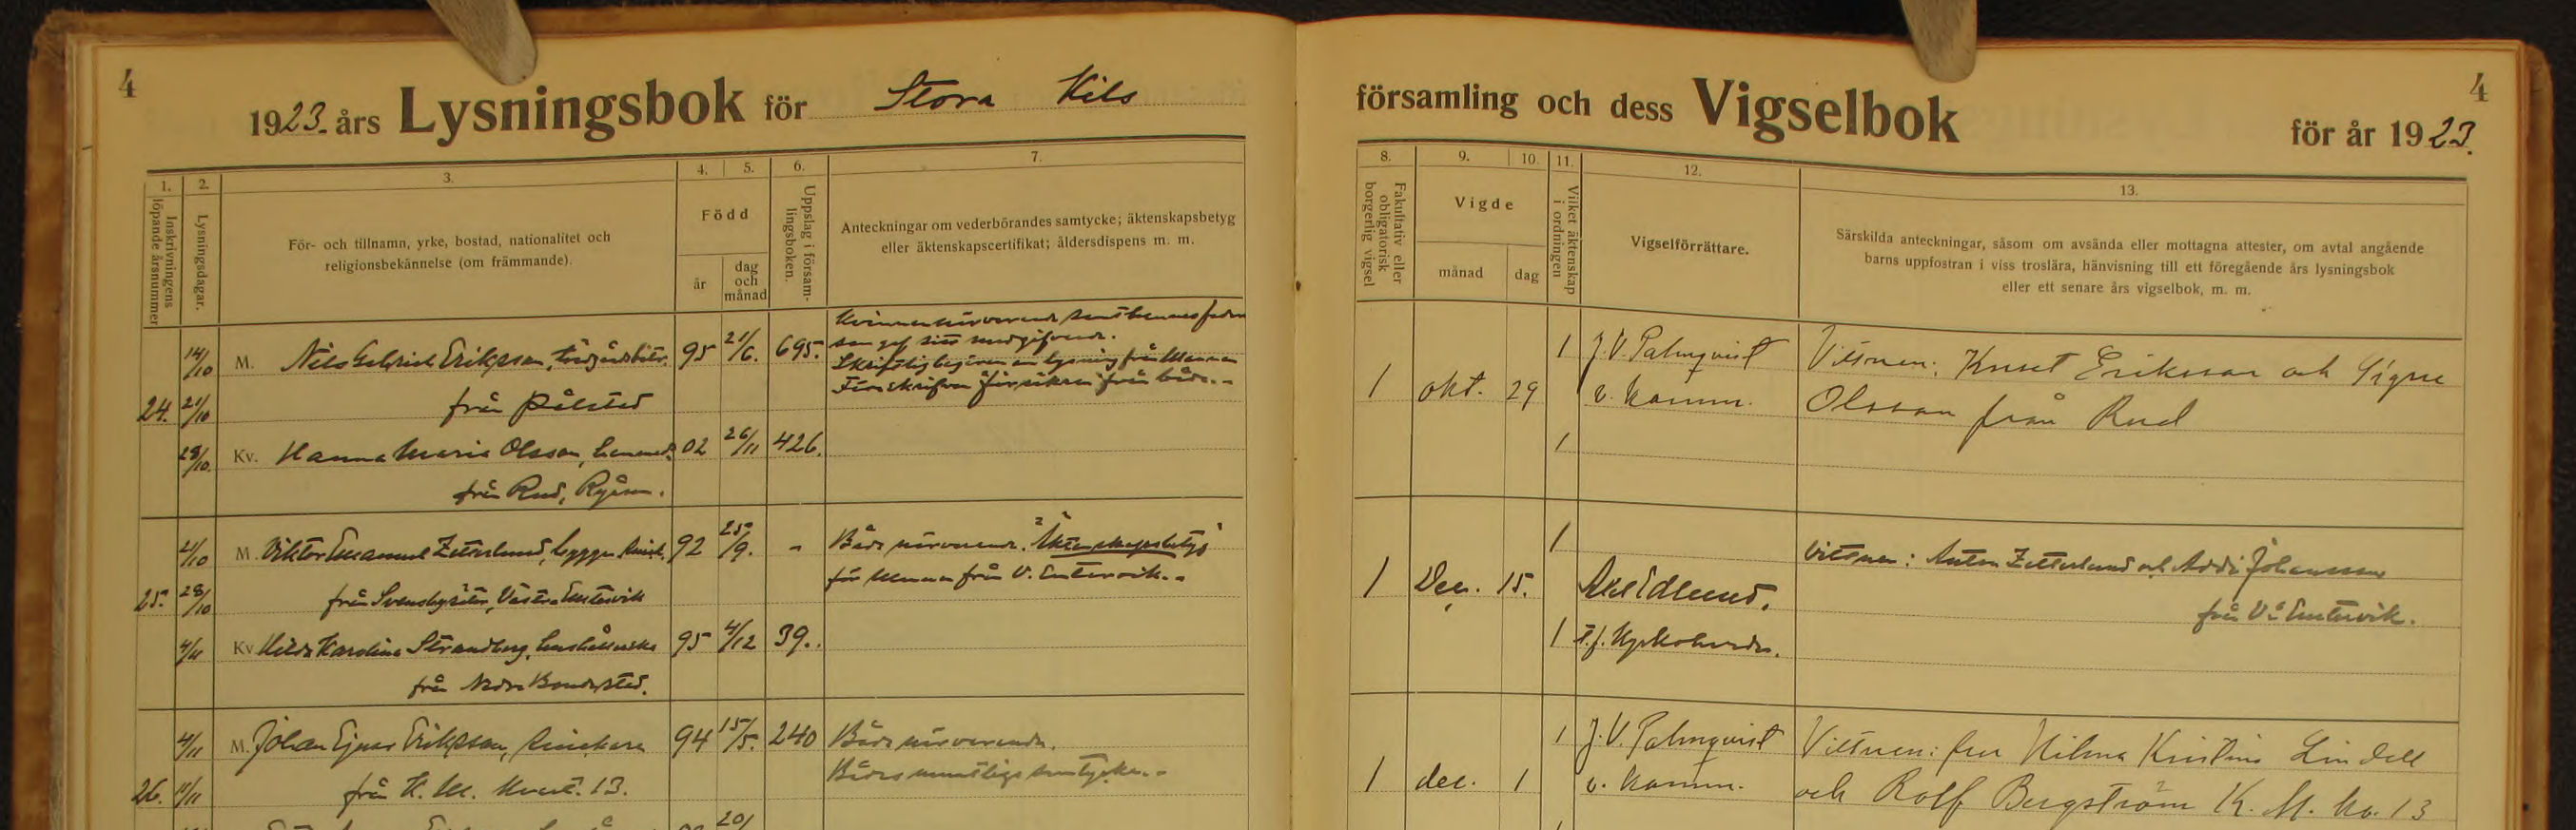 4
1923. års Lysningsbok för Stora Kils
1. 2. 3. 4. 5. 6. 7.
Inskrivningens löpande årsnummer
Lysningsdagar.
För- och tillnamn, yrke, bostad, nationalitet och
religionsbekännelse (om främmande).
Född
år
dag och månad
Uppslag i församlingsboken.
Anteckningar om vederbörandes samtycke; äktenskapsbetyg
eller äktenskapscertifikat; åldersdispens m. m.
14/10 M. Nils Gabriel Eriksson, 95 21/6. 695.
24. 21/10 från Pålsted
28/10. Kv. Hanna Maria Olsson, 02 26/11 426.
från Rud,
21/10 M. Viktor Emanuel Zetterlund, 92 25/9. - Båda närvarande. Äktenskapsbetyg
25. 28/10 från Västra Emtervik för mannen från V. Emtervik.-
4/11 Kv Hilda Karolina Strandberg, hushållerska 95 4/12 39.
från Nedre
4/11 M. Johan Ejnar Eriksson, 94 15/5. 240 Båda närvarande.
26. 11/11 från K. M. 13. Bådas muntliga samtycke.-
20/
4
församling och dess Vigselbok för år 1923.
8. 9. 10. 11. 12. 13.
Fakultativ eller obligatorisk borgerlig vigsel
Vigde
månad
dag
Vilket äktenskap i ordningen
Vigselförrättare.
Särskilda anteckningar, såsom om avsända eller mottagna attester, om avtal angående
barns uppfostran i viss troslära, hänvisning till ett föregående års lysningsbok
eller ett senare års vigselbok, m. m.
1 J. V. Palmqvist Vittnen: Knut Eriksson och Signe
1 okt. 29 v. komm. Olsson från Rud
1
1 Vittnen: Anton Zetterlund och Johansson
1 Dec. 15. Axel Edlund. från V:a Emtervik.
1 t.f. Kyrkoherde.
1 J. V. Palmqvist Vittnen: fru Hilma Kristina Lindell
1 dec. 1 v. komm. och Rolf Bergström K. M. kv. 13